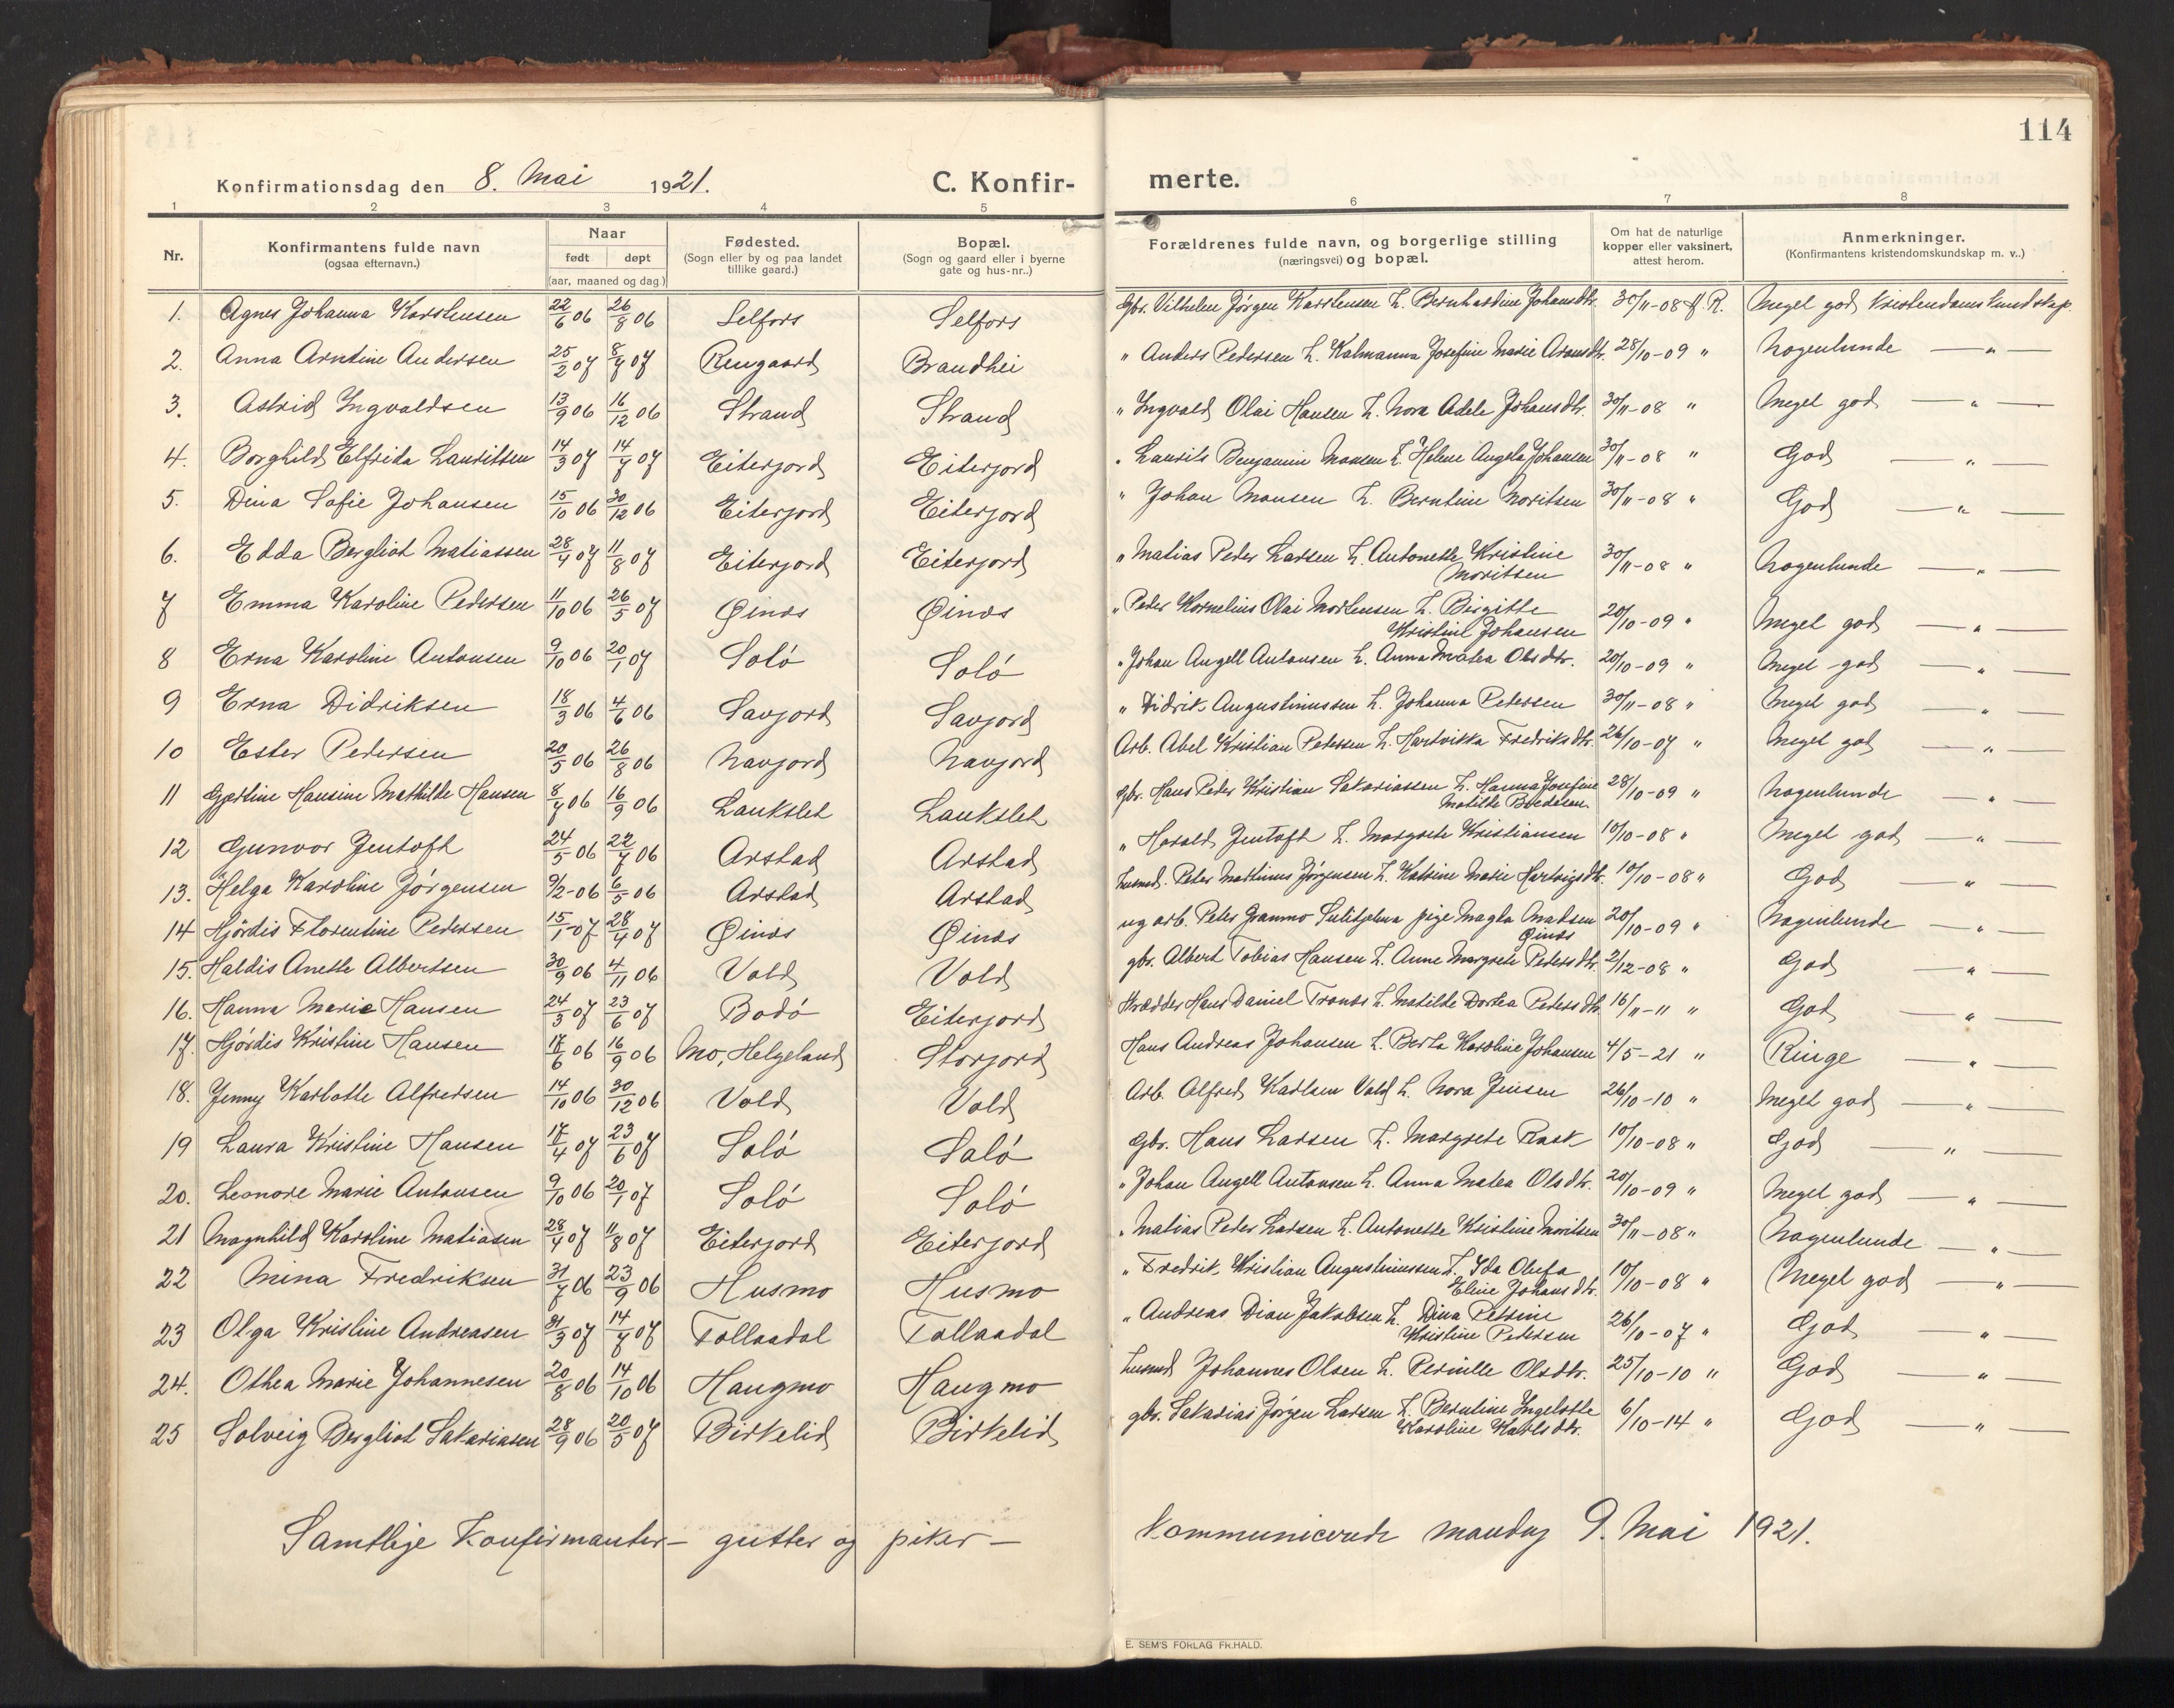 114
Konfirmationsdag den 8. Mai 1921. C. Konfir- merte.
1 2 3 4 5 6 7 8
Nr. Konfirmantens fulde navn (ogsaa efternavn.) Naar født døpt (aar, maaned og dag.) Fødested. (Sogn eller by og paa landet tillike gaard.) Bopæl. (Sogn og gaard eller i byerne gate og hus-nr..) Forældrenes fulde navn, og borgerlige stilling (næringsvei) og bopæl. Om hat de naturlige kopper eller vaksinert, attest herom. Anmerkninger. (Konfirmantens kristendomskundskap m. v..)
1. Agnes Johanna Karstensen 22/6 06 26/8 06 Selfors Selfors Gbr. Vilhelm Jørgen Karstensen h. Bernhardine Johansdtr. 30/11-08 R. Meget god kristendomskundskap.
2. Anna Arntine Andersen 25/2 07 8/7 07 Rengaard Brandhei " Anders Pedersen h. Kalmanna Josefine Marie Aronsdtr. 28/10-09 " Nogenlunde — " —
3. Astrid Ingvaldsen 13/9 06 16/12 06 Strand Strand " Ingvald Olai Hansen h. Nora Adele Johansdtr. 30/11-08 " Meget god — " —
4. Borghild Elfrida Lauritsen 14/3 07 14/7 07 Eiterjord Eiterjord " Laurits Benjamin Monsen h. Helene Angela Johansen 30/11-08 " God — " —
5. Dina Sofie Johansen 15/10 06 30/12 06 Eiterjord Eiterjord " Johan Monsen h. Berntine Moritsen 30/11-08 " God — " —
6. Edda Bergliot Matiassen 28/4 07 11/8 07 Eiterjord Eiterjord " Matias Peder Larsen h. Antonette Kristine Moritsen 30/11-08 " Nogenlunde — " —
7 Emma Karoline Pedersen 11/10 06 26/5 07 Øines Øines " Peder Kornelius Olai Mortensen h. Birgitte Kristine Johansen 20/10-09 " Meget god — " —
8 Erna Karoline Antonsen 9/10 06 20/1 07 Solö Solö " Johan Angell Antonsen h. Anna Matea Olsdtr. 20/10-09 " Meget god — " —
9 Erna Didriksen 18/3 06 4/6 06 Savjord Savjord " Didrik Augustinussen h. Johanna Petersen 30/11-08 " Meget god — " —
10 Ester Pedersen 20/5 06 26/8 06 Navjord Navjord Arb. Abel Kristian Petersen h. Hartvikka Fredriksdtr. 26/10-07 " Meget god — " —
11 Gjertine Hansine Mathilde Hansen 8/7 06 16/9 06 Laukslet Laukslet gbr. Hans Peder Kristian Sakariassen h. Hanna Josefine Matilde 28/10-09 " Nogenlunde — " —
12 Gunvor Jentoft 24/5 06 22/7 06 Arstad Arstad " Harald Jentoft h. Margrete Kristiansen 10/10-08 " Meget god — " —
13. Helga Karoline Jörgensen 9/2-06 6/5 06 Arstad Arstad husmd. Peter Martinus Jørgensen h. Katrine Marie Hartvigsdtr. 10/10-08 " God — " —
14 Hjördis Florentine Pedersen 15/1-07 28/4 07 Øines Øines ug arb. Peter Granmo Sulitjelma pige Magda Madsen Øines 20/10-09 " Nogenlunde — " —
15. Haldis Anette Albertsen 30/9 06 4/11 06 Vold Vold gbr. Albert Tobias Hansen h. Anne Margrete Petersdtr. 2/12-08 " God — " —
16. Hanna Marie Hansen 24/3 07 23/6 07 Bodö Eiterjord Skrædder Hans Daniel h. Matilde Dortea Petersdtr. 16/11-11 " God — " —
17. Hjördis Kristine Hansen 17/6 06 16/9 06 Mo, Helgeland Storjord Hans Andreas Johansen h. Berta Karoline Johansen 4/5-21 " Ringe — " —
18. Jenny Karlotte Alfredsen 14/10 06 30/12 06 Vold Vold Arb. Alfred Karlsen Vold h. Nora Jensen 26/10-10 " Meget god — " —
19 Laura Kristine Hansen 17/4 07 23/6 07 Solö Solö Gbr. Hans Larsen h. Margrete Rask 10/10-08 " God — " —
20. Leonore Marie Antonsen 9/10 06 20/1 07 Solö Solö " Johan Angell Antonsen h. Anna Matea Olsdtr. 20/10-09 " Meget god — " —
21 Magnhild Karoline Matiasen 28/4 07 11/8 07 Eiterjord Eiterjord " Matias Peter Larsen h. Antonette Kristine Moritsen 30/11-08 " Nogenlunde — " —
22 Mina Fredriksen 31/7 06 23/9 06 Husmo Husmo " Fredrik Kristian Augustinussen h. Ida Olufa Eline Johansdtr. 10/10-08 " Meget god — " —
23 Olga Kristine Andreasen 31/3 07 14/7 07 Tollaadal Tollaadal " Andreas Dian Jakobsen h. Dina Petrine Kristine Pedersen 26/10-07 " God — " —
24. Othea Marie Johannesen 20/8 06 14/10 06 Haugmo Haugmo husmd Johannes Olsen h. Pernille Olsdtr. 25/10-10 " God — " —
25 Solveig Bergliot Sakariasen 28/9 06 20/5 07 Birkelid Birkelid gbr. Sakarias Jörgen Larsen h. Berntine Ingelotte Karoline Karlsdtr. 6/10-14 " God — " —
Samtlige konfirmanter - gutter og piker - kommunicerede mandag 9. Mai 1921.
E. SEM'S FORLAG FR.HALD.